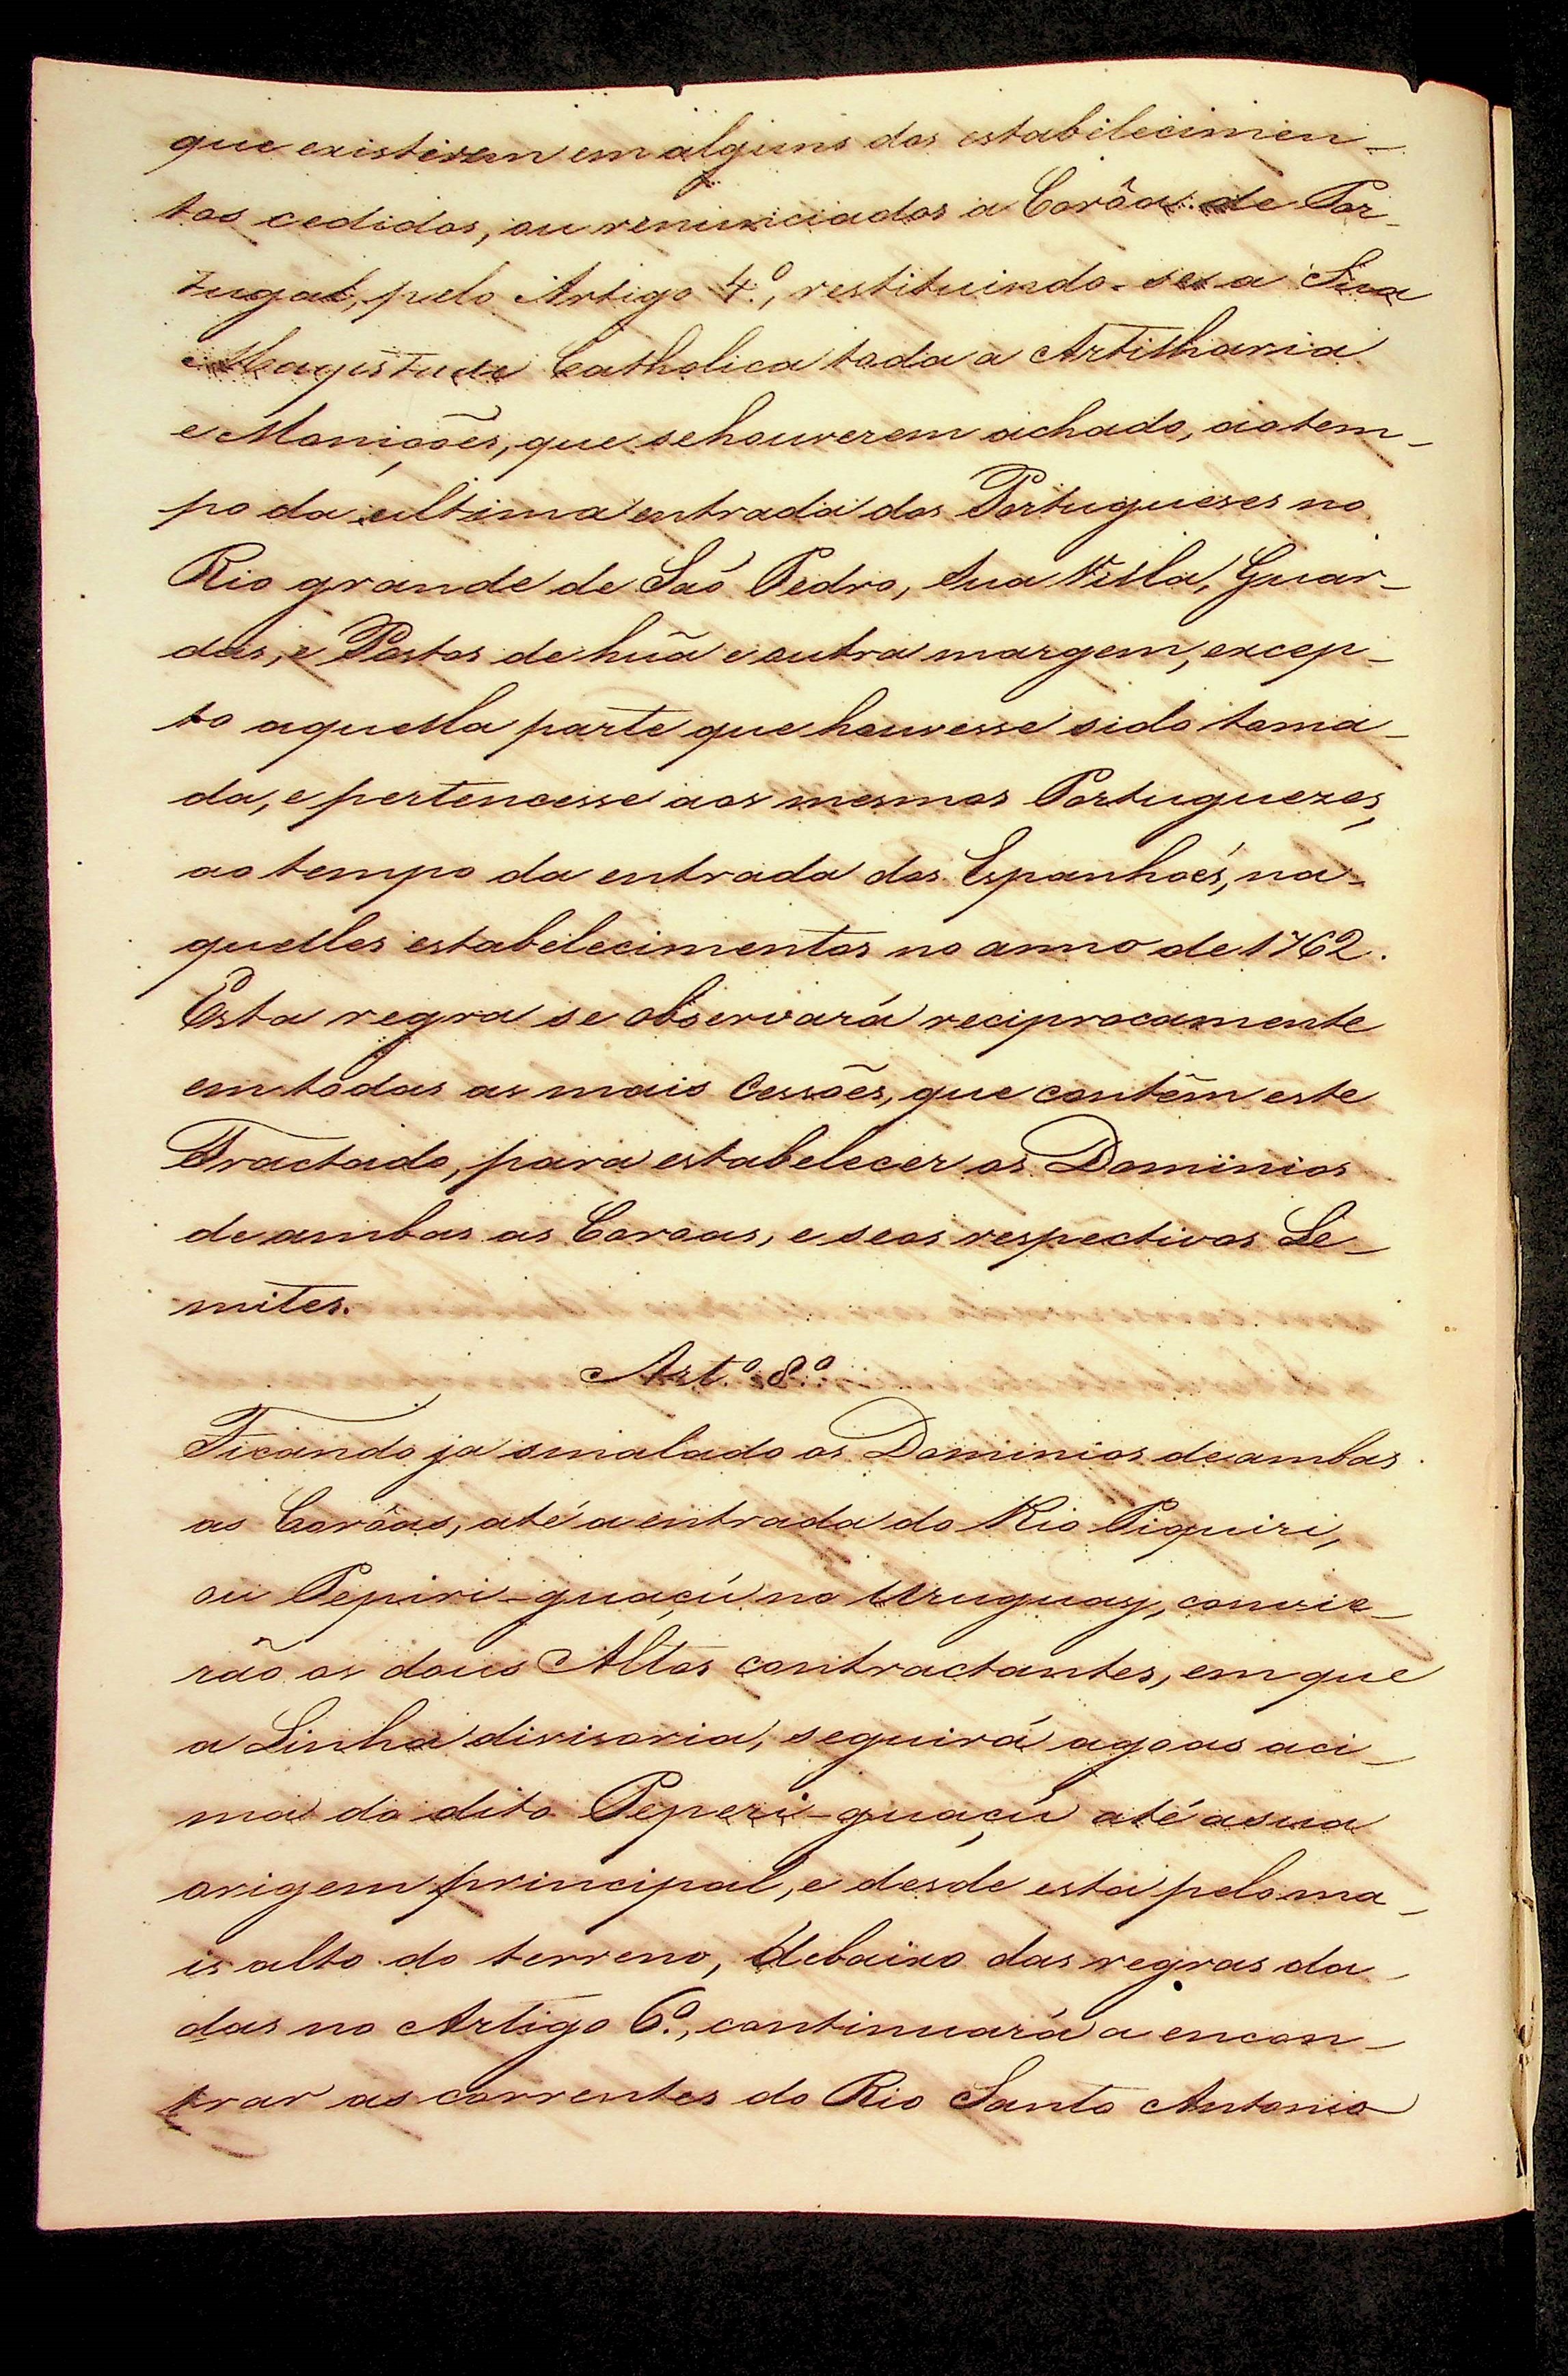 que existirem em alguns dos estabilecimen-
tos cedidos, ou renunciados a Corôa de Por-
tugal, pelo Artigo 4.º, restituindo-se a Sua
Magestade Catholica toda a Artilharia
e Moniçoẽs, que se houverem achado, ao tem-
po da ultima entrada dos Portugueses no
Rio grande de Saõ Pedro, sua Villa, Guar-
das, e Postos de hũa e outra margem, excep-
to aquella parte que houvesse sido toma-
da, e pertencesse aos mesmos Portuguezes,
ao tempo da entrada dos Espanhoés, na-
quelles estabelecimentos no anno de 1762.
Esta regra se observará reciprocamente
em todas as mais Cessões, que contêm este
Tractado, para estabelecer os Dominios
de ambas as Coroas, e seos respectivos Le-
mites.
Art.º 8.º
Ficando ja sinalado os Dominios de ambas
as Corôas, até a entrada do Rio Piquiri,
ou Pepiri-guaçú no Uruguay, convie-
rão os dous Altos contractantes, em que
a Linha divisoria, seguirá agoas aci-
ma do dito Peperi-guaçú até a sua
origem principal, e desde esta pelo ma-
is alto do terreno, debaixo das regras da-
das no Artigo 6.º, continuará a encon-
trar as correntes do Rio Santo Antonio